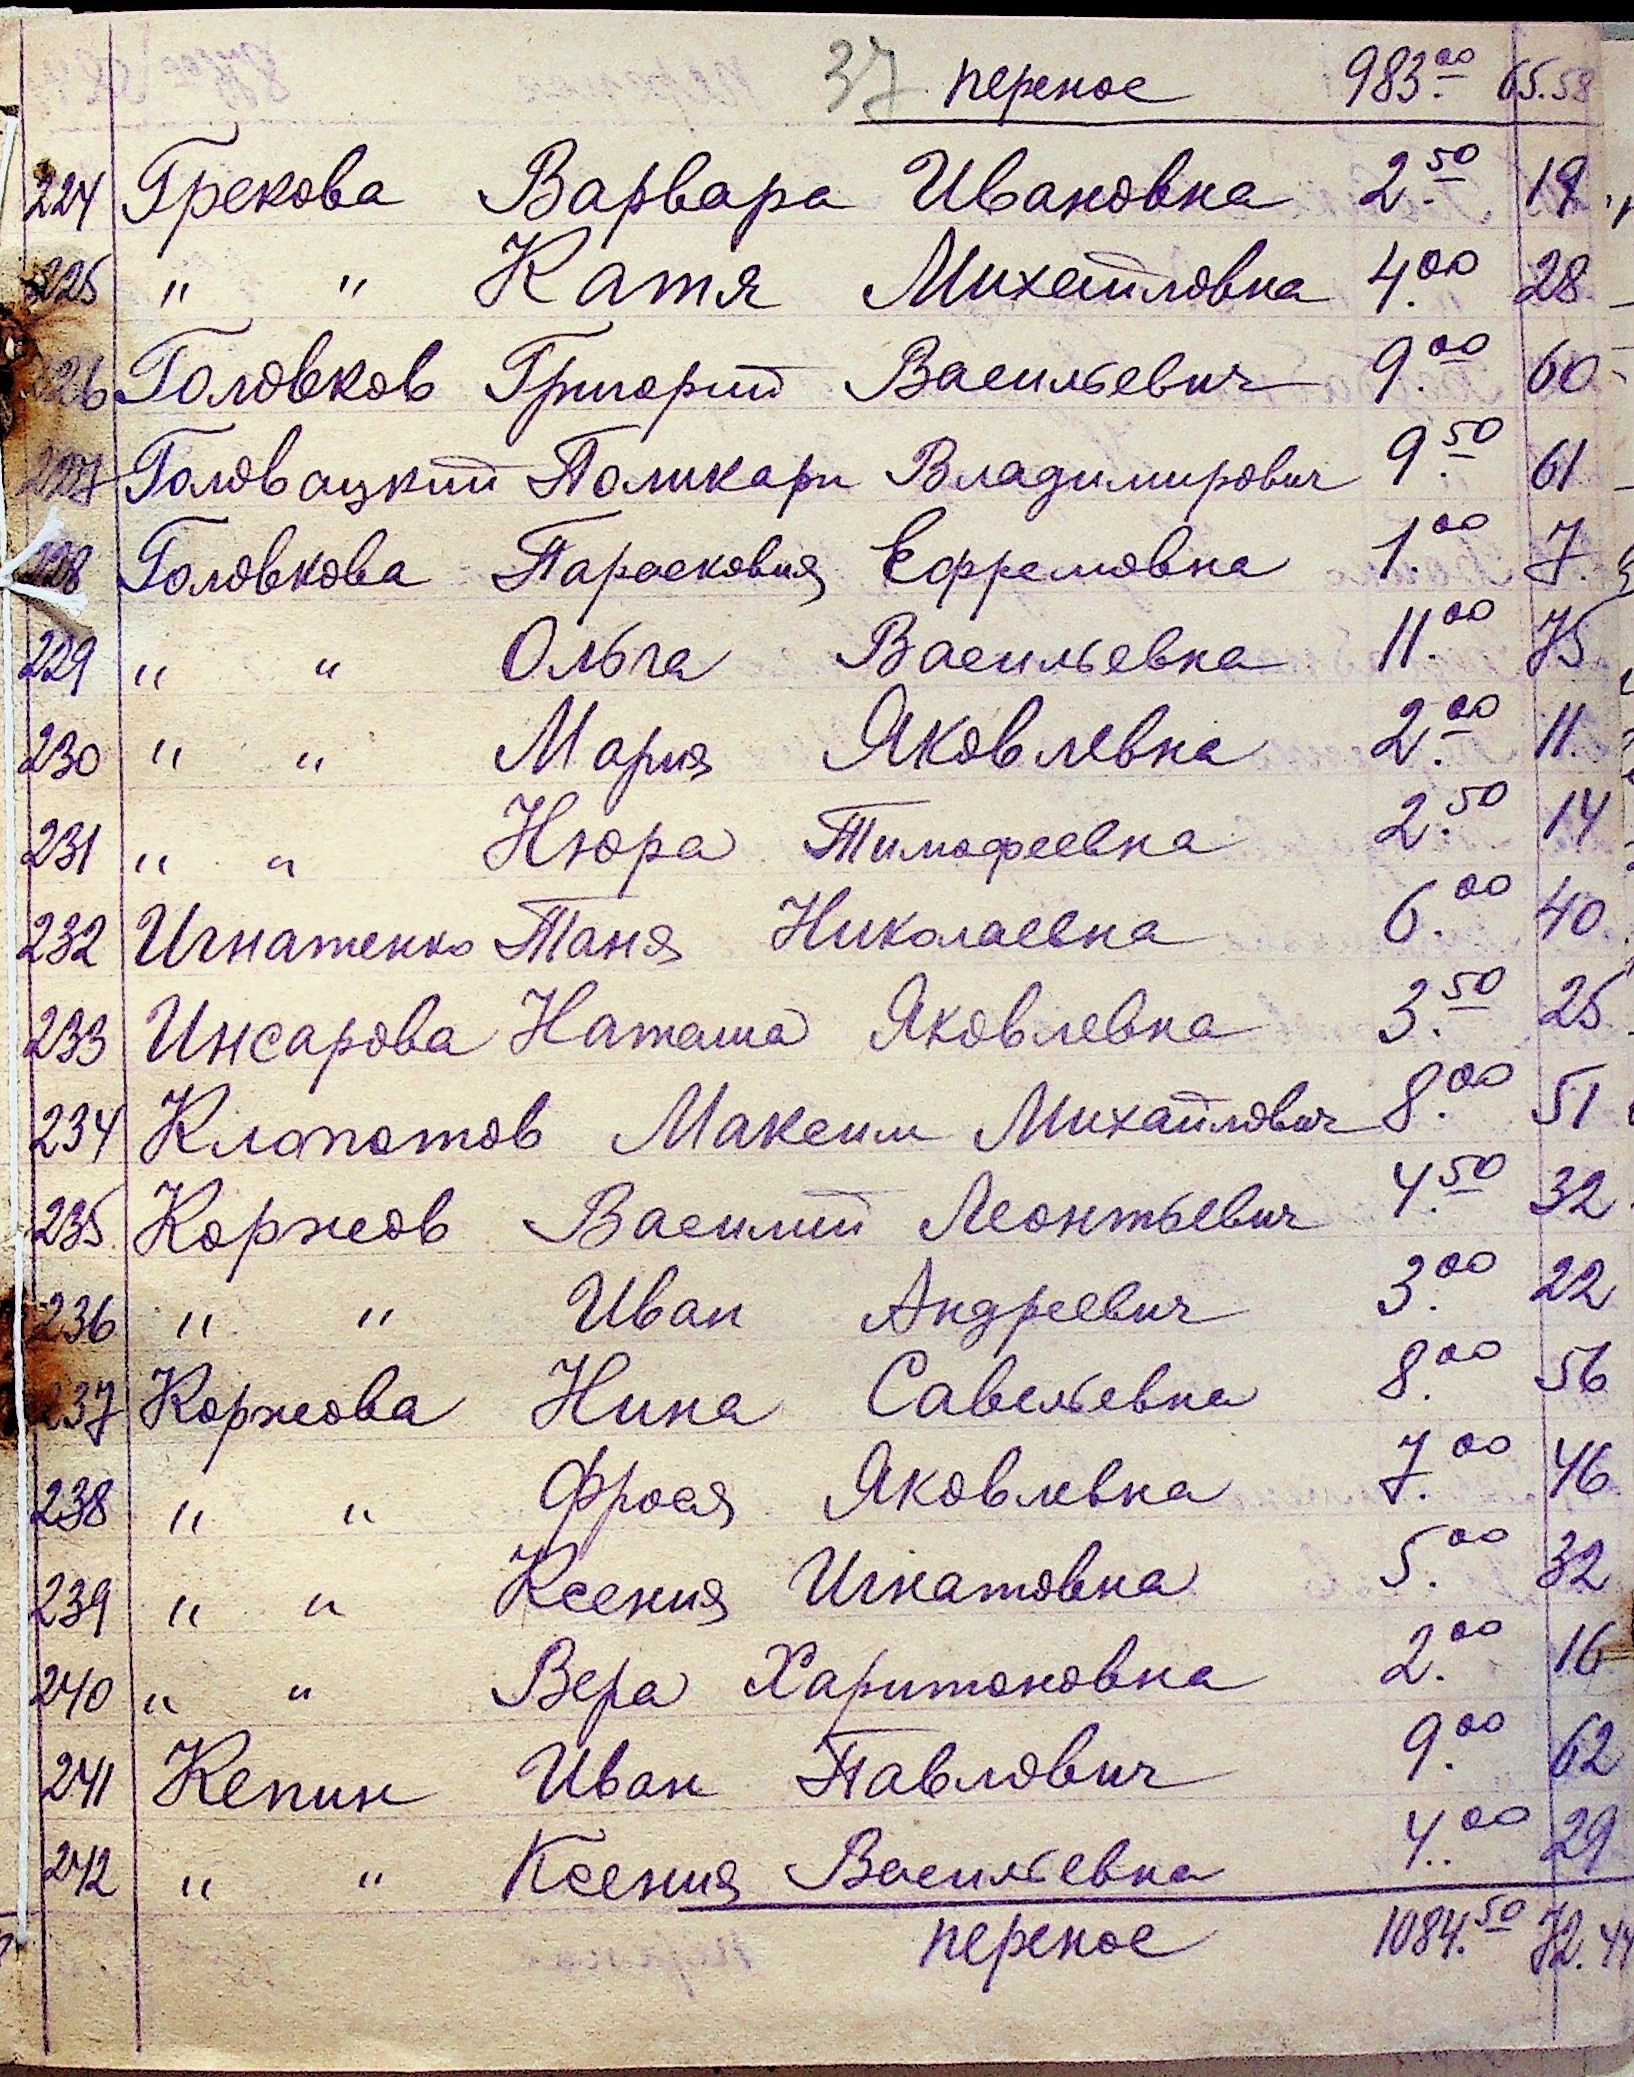 37 перенос 983.00 65.58
224 Грекова Варвара Ивановна 2.50 19
225 " " Катя Михайловна 4.00 28
226 Головков Григорий Васильевич 9.00 60
227 Головацкий Поликарп Владимирович 9.50 61
228 Головкова Парасковия Ефремовна 1.00 7
229 " " Ольга Васильевна 11.00 75
230 " " Мария Яковлевна 2.00 11
231 " " Нюра Тимофеевна 2.50 14
232 Игнатенко Таня Николаевна 6.00 40
233 Инсарова Наташа Яковлевна 3.50 25
234 Клопотов Максим Михайлович 8.00 51
235 Коржов Василий Леонтьевич 4.50 32
236 " " Иван Андреевич 3.00 22
237 Коржова Нина Савельевна 8.00 56
238 " " Фрося Яковлевна 7.00 46
239 " " Ксения Игнатовна 5.00 32
240 " " Вера Харитоновна 2.00 16
241 Кепин Иван Павлович 9.00 62
242 " " Ксения Васильевна 4.00 29
перенос 1084.50 72.44